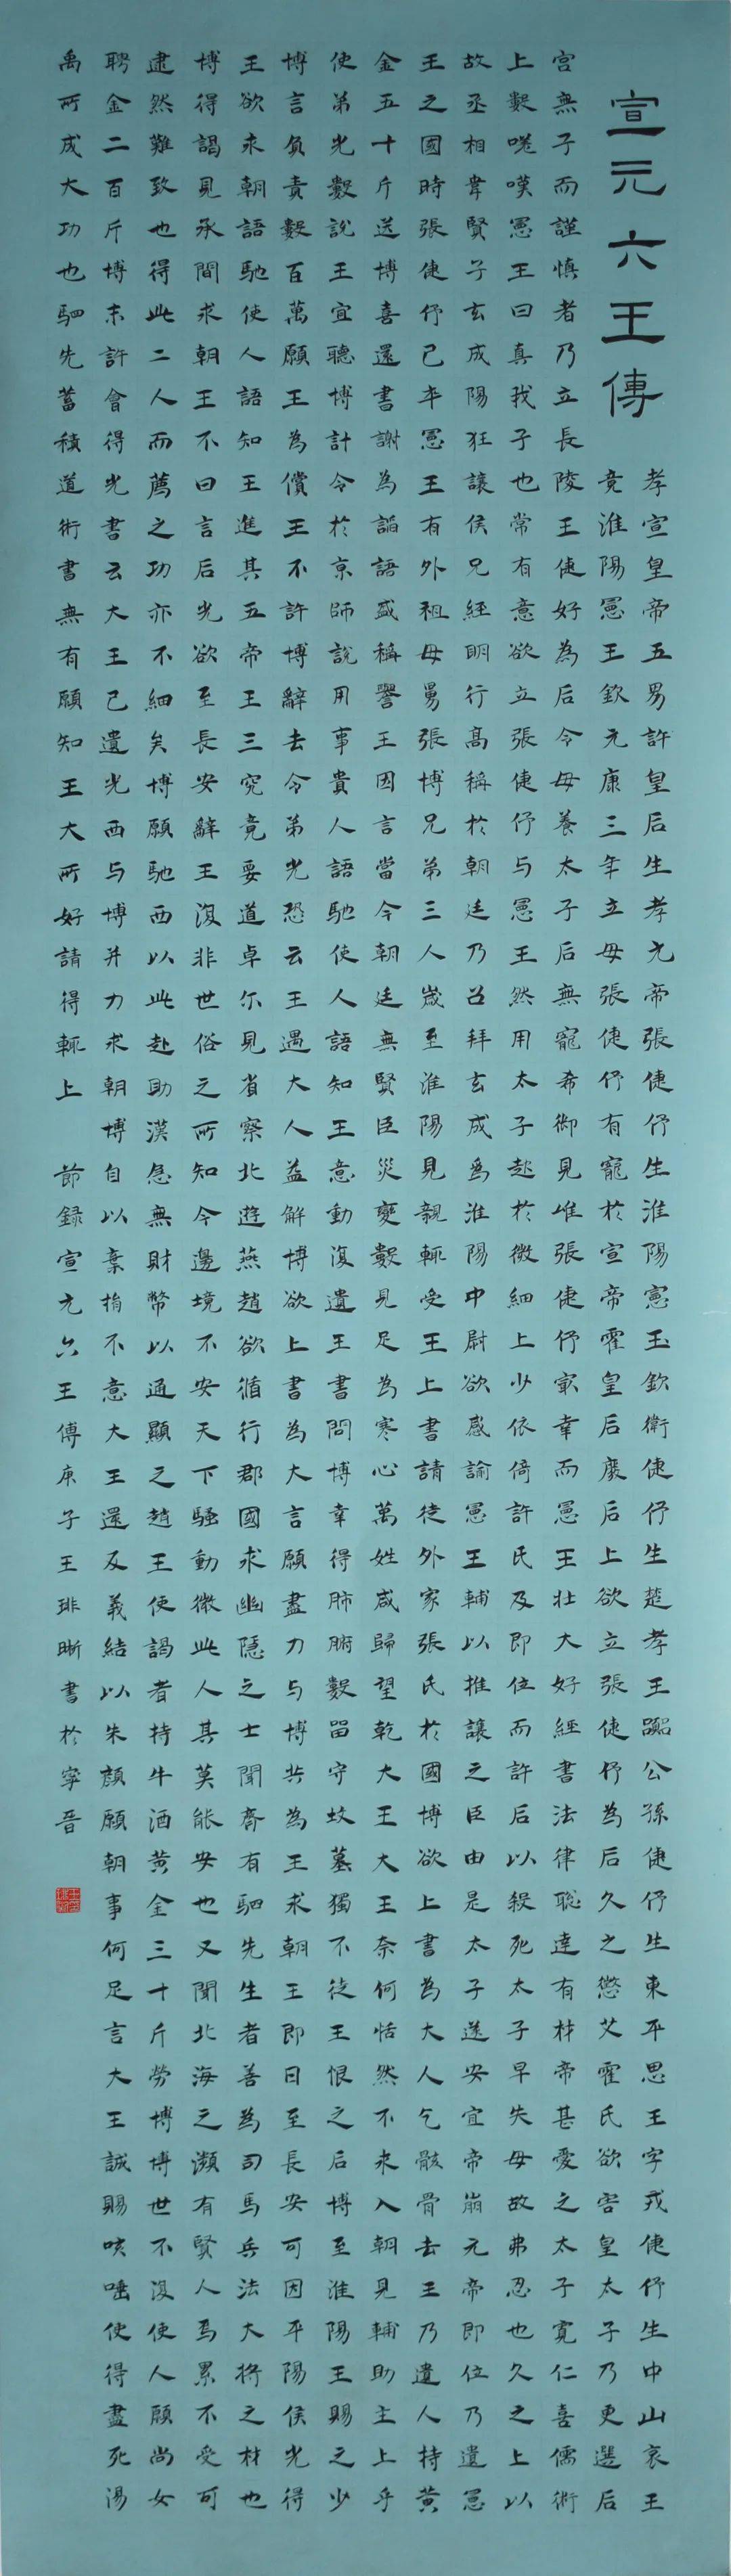 宣元六王傳
孝宣皇帝五男許皇后生孝元帝張倢伃生淮陽憲王欽衛倢伃生楚孝王囂公孫倢伃生東平思王宇戎倢伃生中山哀王
竟淮陽憲王欽元康三年立母張倢伃有寵於宣帝霍皇后廢后上欲立張倢伃為后久之懲艾霍氏欲害皇太子乃更選后
宮無子而謹慎者乃立長陵王倢好為后令母養太子后無寵希御見唯張倢伃最幸而憲王壯大好經書法律聡達有材帝甚愛之太子寬仁喜儒術
上數嗟嘆憲王曰真我子也常有意欲立張倢伃与憲王然用太子起於微細上少依倚許氏及即位而許后以殺死太子早失母故弗忍也久之上以
故丞相韋賢子玄成陽狂讓侯兄經明行高稱於朝廷乃召拜玄成為淮陽中尉欲感諭憲王輔以推讓之臣由是太子遂安宜帝崩元帝即位乃遣憲
王之國時張倢伃已卒憲王有外祖母舅張博兄弟三人歲至淮陽見親輒受王上書請徙外家張氏於國博欲上書為大人乞骸骨去王乃遣人持黃
金五十斤送博喜還書謝為諂語盛稱譽王因言當今朝廷無賢臣災變數見足為寒心萬姓咸歸望乾大王大王奈何恬然不求入朝見輔助主上乎
使弟光數說王宜聽博計令於京師說用事貴人語馳使人語知王意動復遺王書問博幸得肺腑數留守坟墓獨不徙王恨之后博至淮陽王賜之少
博言負責數百萬願王為償王不許博辭去令弟光恐云王遇大人益解博欲上書為大言願盡力与博共為王求朝王即日至長安可因平陽侯光得
王欲求朝語馳使人語知王進其五帝王三究竟要道卓尔見省察北遊燕趙欲循行郡國求幽隱之士聞齊有駟先生者善為司馬兵法大將之材也
博得謁見承間求朝王不曰言后光欲至長安辭王復非世俗之所知今邊境不安天下騷動微此人其莫能安也又聞北海之瀕有賢人焉累不受可
逮然難致也得此二人而薦之功亦不細矣博願馳西以此赴助漢急無財幣以通顯之趙王使謁者持牛酒黃金三十斤勞博博世不復使人願尚女
聘金二百斤博未許會得光書云大王已遣光西与博并力求朝博自以棄捐不意大王還反義結以朱顏願朝事何足言大王誠賜咳唾使得盡死湯
禹所成大功也駟先蓄積道術書無有願知王大所好請得輒上 節錄宣元六王傳庚子王琲晰書於寧晉